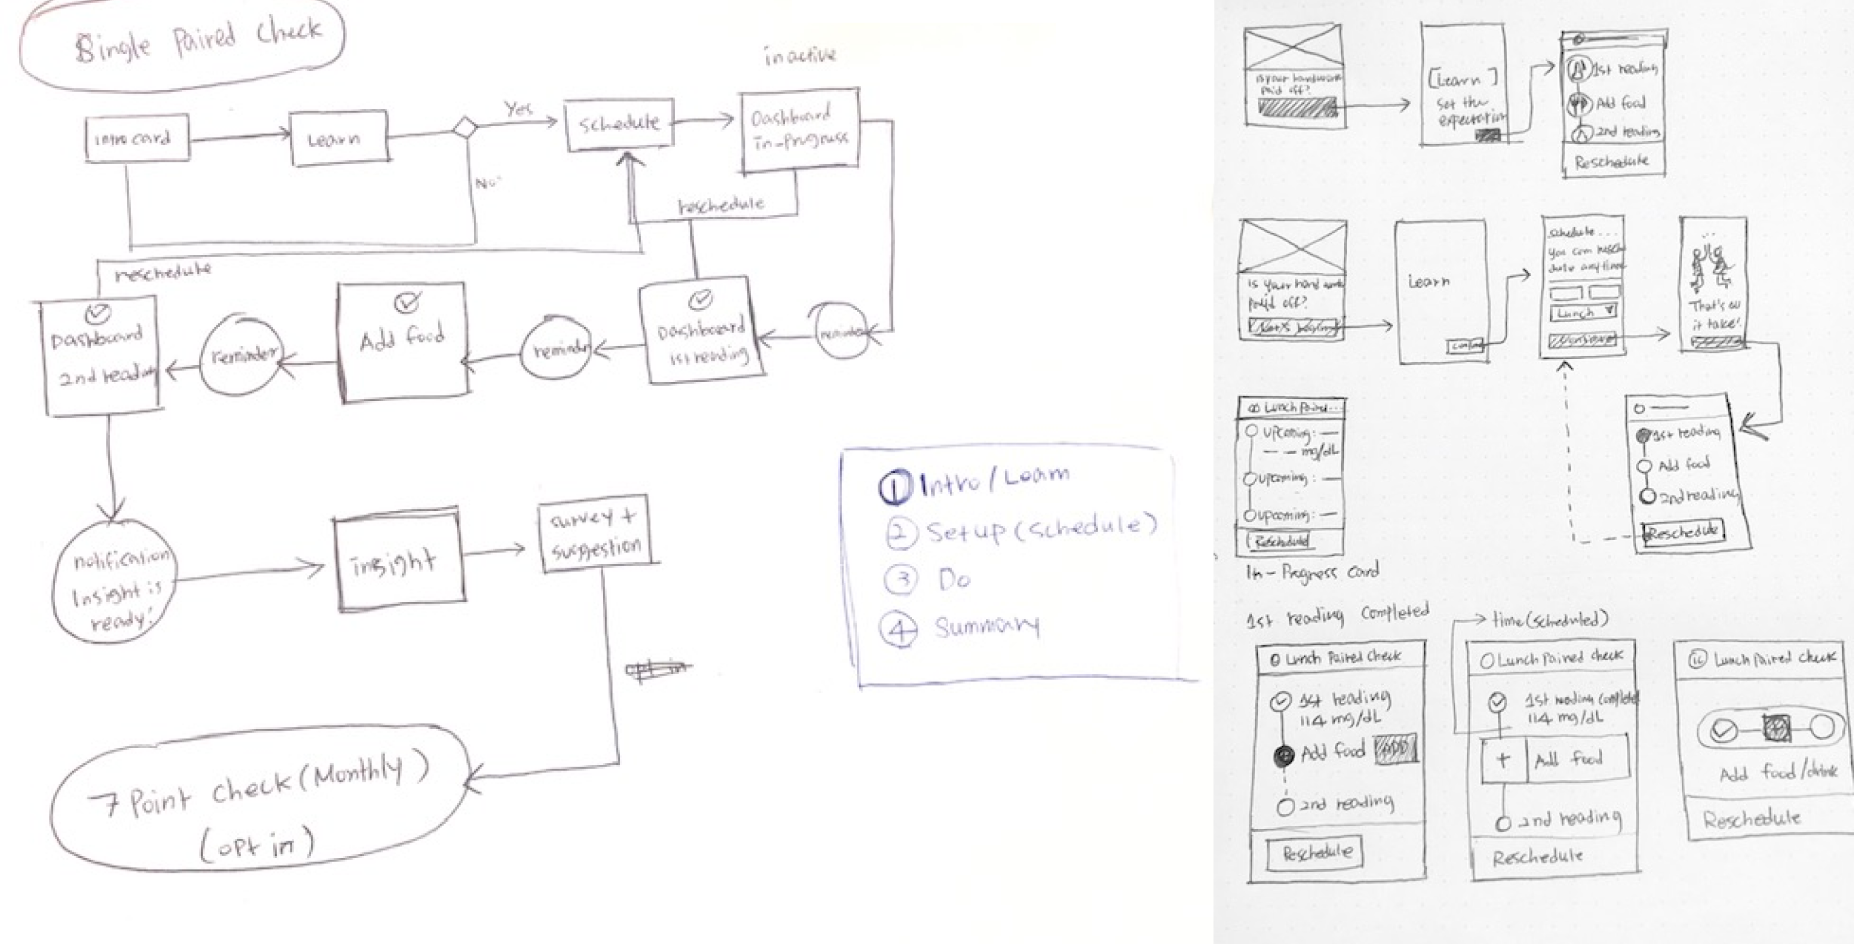 Single Paired Check
inactive
intro card
Learn
Yes
No
schedule
Dashboard
in-Progress
reschedule
reschedule
Dashboard
2nd reading
reminder
Add food
reminder
Dashboard
1st reading
reminder
notification
Insight is
ready!
insight
survey +
suggestion
opt in
7 Point check (Monthly)
(opt in)
1 Intro / Learn
2 Setup (schedule)
3 Do
4 Summary
is your hardwork
paid off?
[Learn]
Set the
expectation
1st reading
Add food
2nd reading
Reschedule
is your hard work
paid off?
Learn
schedule...
you can resch
dule anytime
Lunch
...
That's all
it take!
Lunch Paired...
upcoming: —
— — mg/dL
upcoming: —
upcoming: —
Reschedule
In-Progress card
1st reading
Add food
2nd reading
Reschedule
1st reading completed
Lunch Paired Check
1st reading
114 mg/dL
Add food ADD
2nd reading
Reschedule
time (scheduled)
Lunch Paired check
1st reading completed
114 mg/dL
+ Add food
2nd reading
Reschedule
Lunch Paired check
Add food/drink
Reschedule